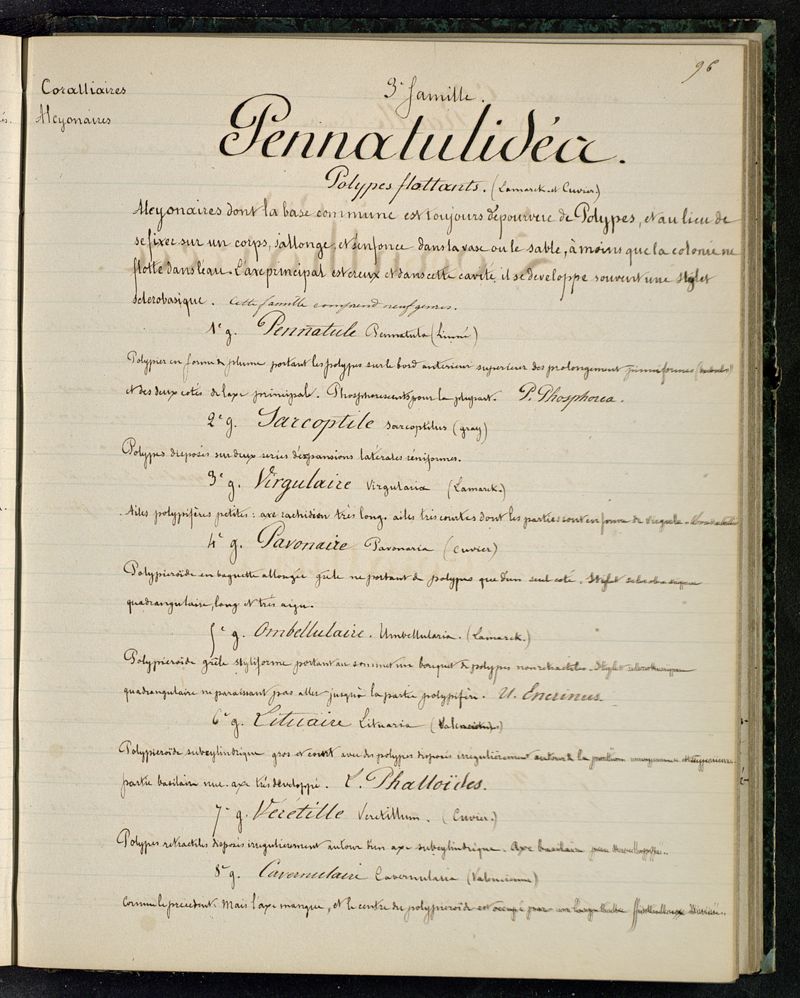 96
Coralliaires
Alcyonaires
3e famille.
Pennatulidéa.
Polypes flottants. (Lamarck et Cuvier)
Alcyonaires dont la base commune est toujours dépourvue de Polypes, et au lieu de
se fixer sur un corps, s'allonge, et s'enfonce dans la vase ou le sable, à moins que la colonie ne
flotte dans l'eau. L'axe principal est creux et dans cette cavité, il se développe souvent une stylet
sclérobasique. Cette famille comprend neuf genres.
1e g. Pennatule Pennatula (Linné)
Polypier en forme de plume portant les polypes sur le bord antérieur supérieur des prolongement pinniformes
et des deux cotés de l'axe principal. Phosphorescents pour la plupart. P. Phosphorea.
2e g. Sarcoptile Sarcoptilus (gray)
Polypes disposés sur deux séries d'expansions latérales réniformes.
3e g. Virgulaire Virgularia (Lamarck.)
Ailes polypifères petites: axe rachidien très long. ailes très courtes dont les parties sont en forme de virgule.
4e g. Pavonaire Pavonaria (Cuvier)
Polypieroïde en baguette allongée grèle ne portant de polypes que d'un seul coté. Stylet sclerobasique
quadrangulaire, long et très aigu.
5e g. Ombellulaire. Umbellularia. (Lamarck.)
Polypieroïde grèle styliforme portant au sommet un bouquet de polypes non rétractiles. Stylet sclerobasique
quadrangulaire ne paraissant pas aller jusqu'à la partie polypifère. U. Encrinus.
6e g. Lituaire Lituaria (Valenciennes.)
Polypieroïde subcylindrique gros et court avec des polypes disposés irrégulièrement autour de la portion moyenne et supérieure
partie basilaire nue. axe très développé. L. Phalloïdes.
7e g. Vérétille Veretillum. (Cuvier.)
Polypes rétractiles disposés irrégulièrement autour d'un axe subcylindrique. Axe basilaire peu développé.
8e g. Cavernulaire Cavernularia (Valencienne)
Comme le précédent. Mais l'axe manque, et le centre du polypieroïde est occupé par